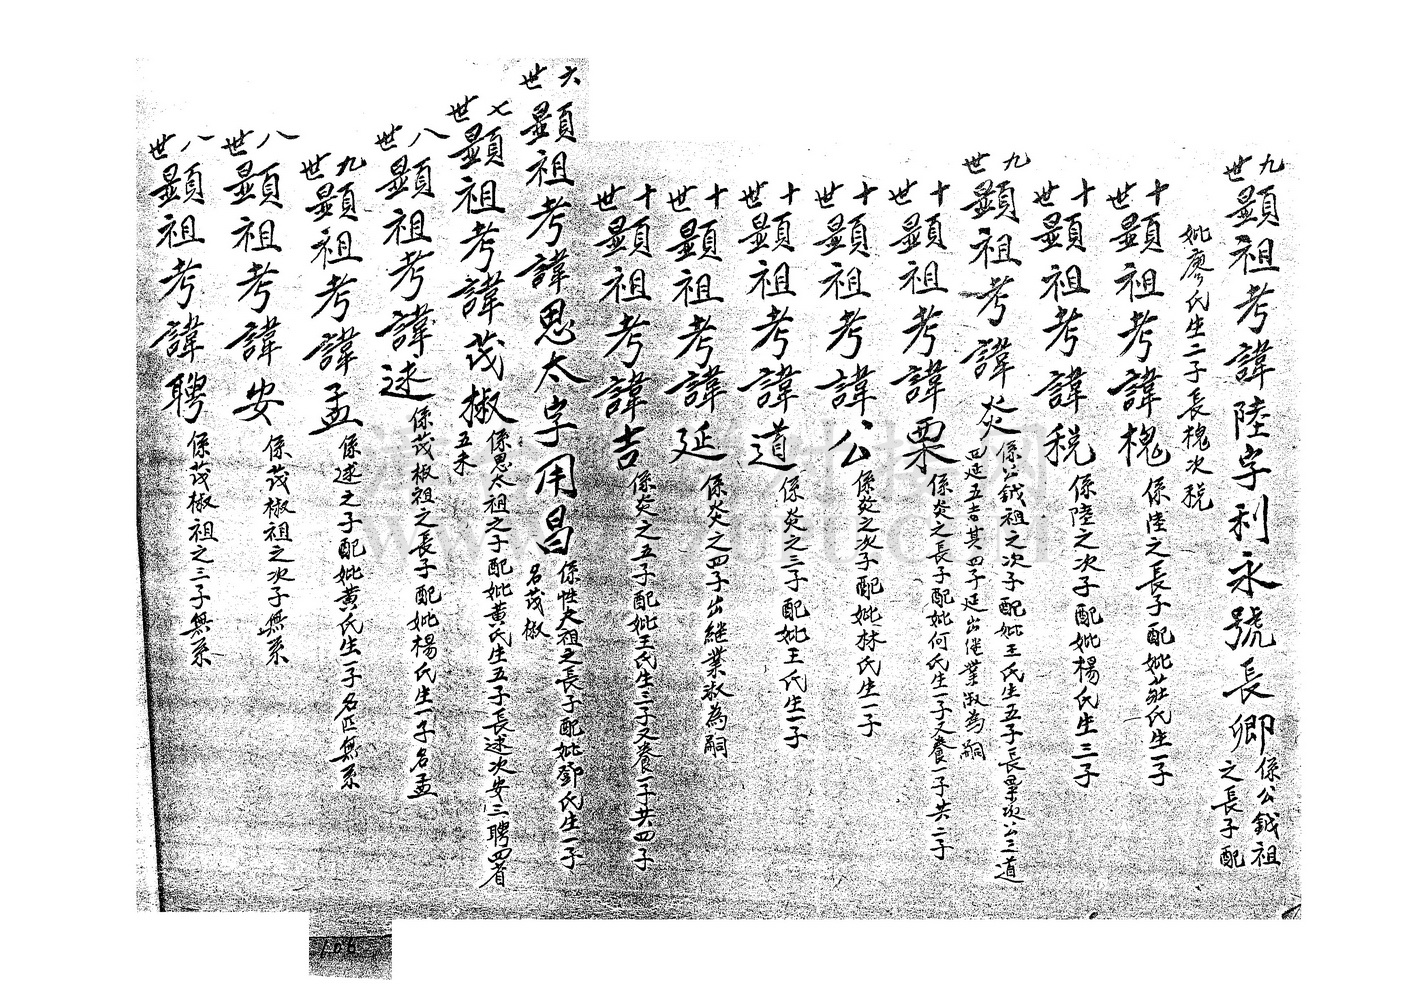 九世 顯祖考諱陸字利永號長卿 係公鉞祖之長子配
妣廖氏生二子長槐次稅
十世 顯祖考諱槐 係陸之長子配妣莊氏生一子
十世 顯祖考諱稅 係陸之次子配妣楊氏生三子
九世 顯祖考諱炎 係公鉞祖之次子配妣王氏生五子長栗次公三道
四延五吉其四子延出继業淑為嗣
十世 顯祖考諱栗 係炎之長子配妣何氏生一子又養一子共二子
十世 顯祖考諱公 係炎之次子配妣林氏生一子
十世 顯祖考諱道 係炎之三子配妣王氏生一子
十世 顯祖考諱延 係炎之四子出継業淑為嗣
十世 顯祖考諱吉 係炎之五子配妣王氏生三子又養一子共四子
六世 顯祖考諱思太字用昌 係性夫祖之長子配妣鄧氏生一子
名茂椒
七世 顯祖考諱茂椒 係思太祖之子配妣黄氏生五子長述次安三聘四眷
五未
八世 顯祖考諱述 係茂椒祖之長子配妣楊氏生一子名孟
九世 顯祖考諱孟 係述之子配妣黄氏生一子名匹無系
八世 顯祖考諱安 係茂椒祖之次子無系
八世 顯祖考諱聘 係茂椒祖之三子無系